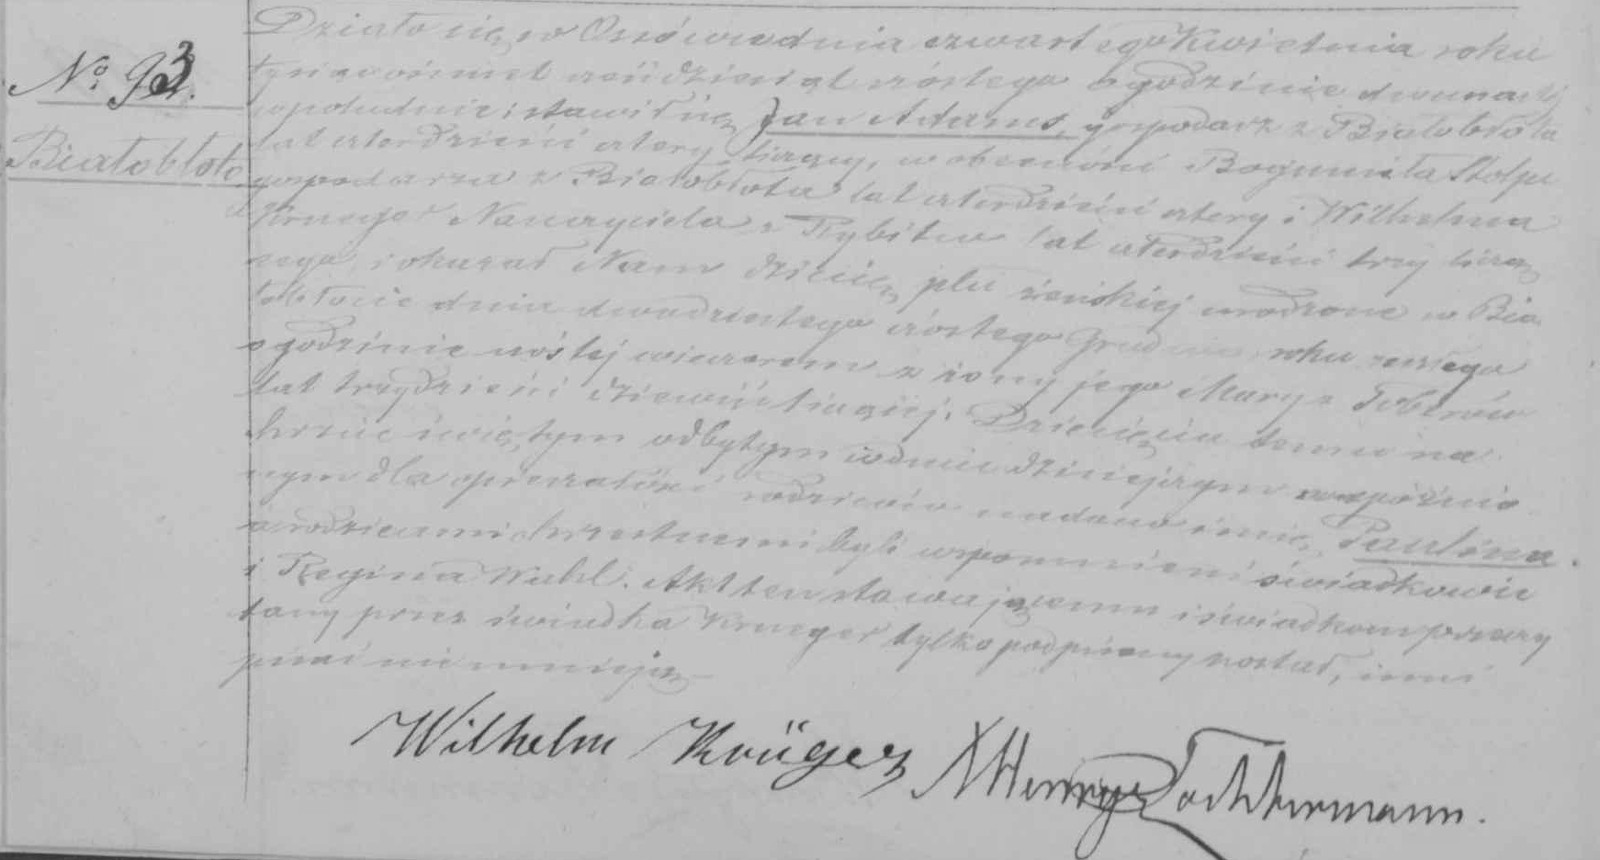 No 93.
Białobłoto
Działo się w Ossówce dnia czwartego Kwietnia roku
tysiąc ośmset sześćdziesiąt szóstego o godzinie dwunastej
w południe; stawił się Jan Adams, gospodarz z Białobłota
lat czterdzieści cztery liczący, w obecności Bogumiła Stolpe
gospodarza z Białobłota lat czterdzieści cztery i Wilhelma
Krueger Nauczyciela z Rybitw lat czterdzieści trzy liczą
cego, i okazał Nam dziecię płci żeńskiej urodzone w Bia
łobłocie dnia dwudziestego szóstego Grudnia roku zeszłego
o godzinie szóstej wieczorem z żony jego Maryi
lat trzydzieści dziewięć liczącej. Dziecięciu temu na
Chrzcie świętym odbytym w dniu dzisiejszym opóźnio
nym dla opieszałości rodziców nadano imię Paulina.
a rodzicami chrzestnemi byli wspomnieni świadkowie
i Regina Wuhl. Akt ten stawającemu i świadkom przeczy
tany przez świadka Krueger tylko podpisany został, inni
pisać nie umieją
Wilhelm Krüger X Henryk Tochtermann.